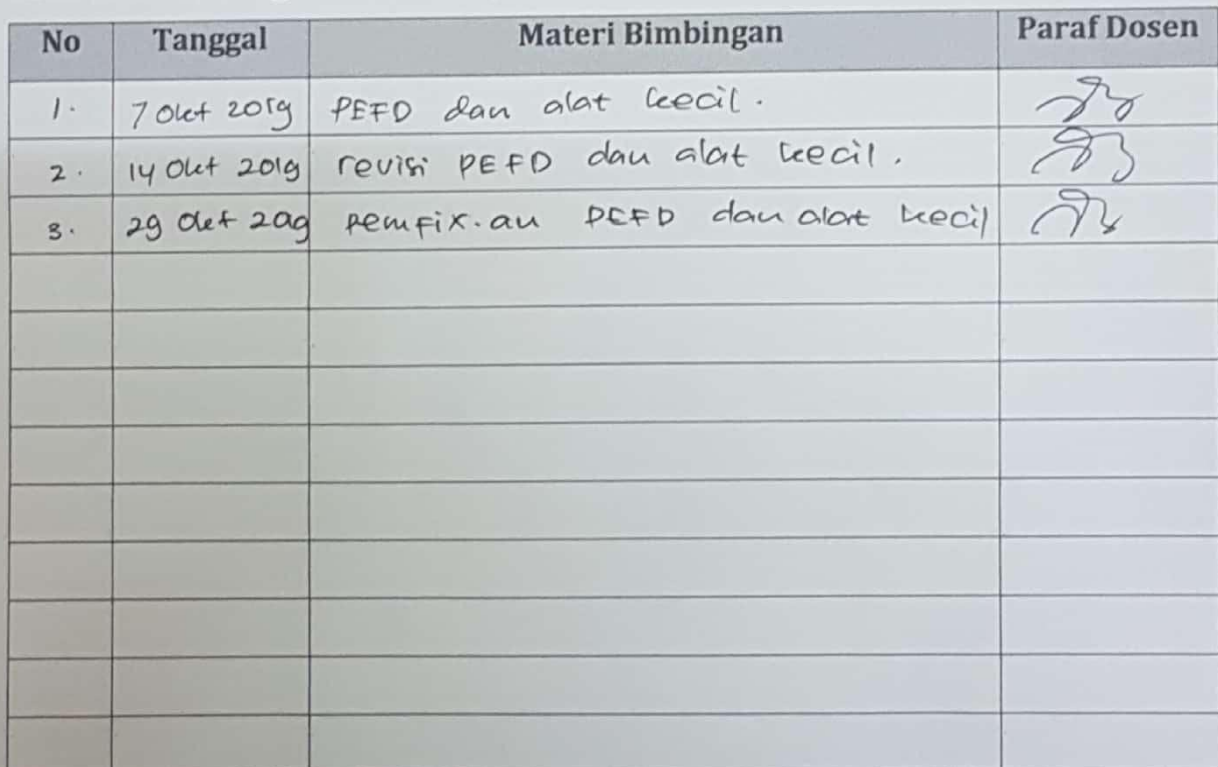 No Tanggal Materi Bimbingan Paraf Dosen
1. 7 Okt 2019 PEFD dan alat kecil.
2. 14 Okt 2019 revisi PEFD dan alat kecil.
3. 29 Okt 2019 Pemfix.an PEFD dan alat kecil